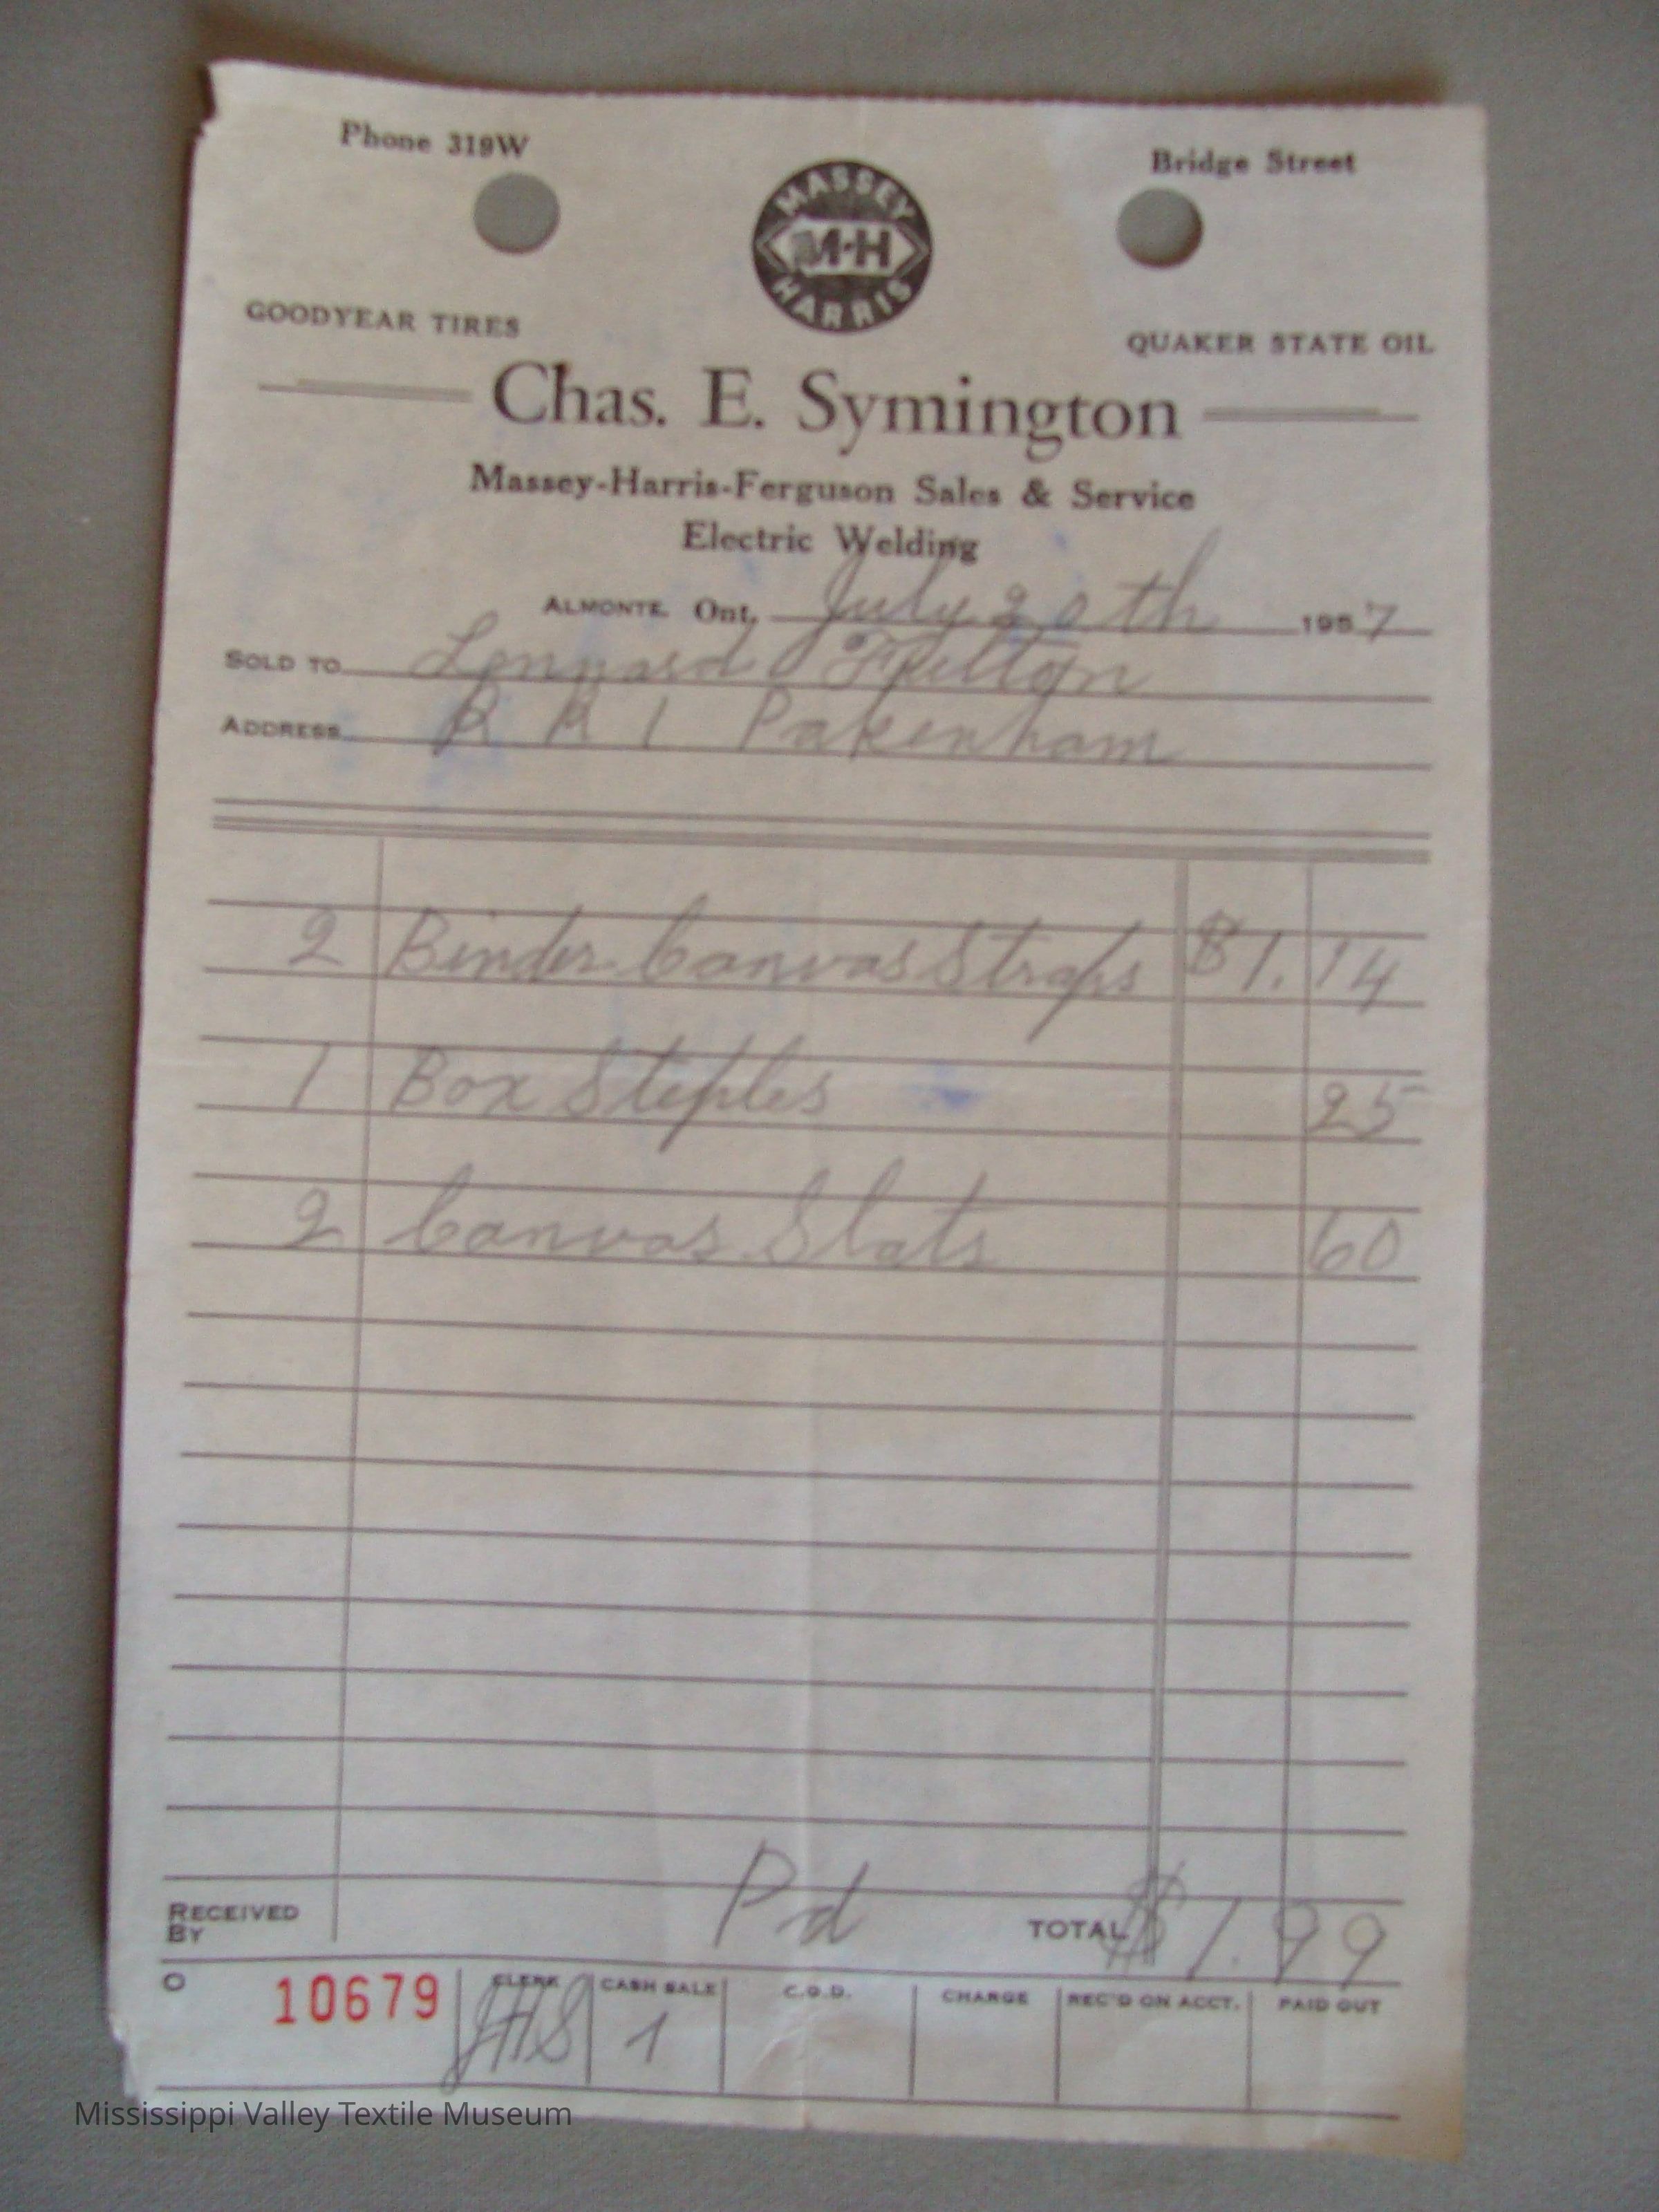 Phone 319W
Bridge Street
MASSEY
M-H
HARRIS
GOODYEAR TIRES
QUAKER STATE OIL
Chas. E. Symington
Massey-Harris-Ferguson Sales & Service
Electric Welding
ALMONTE, Ont. July 20th 1957
SOLD TO Lennard Fulton
ADDRESS R R 1 Pakenham
2 Binder Canvas Straps $1.14
1 Box Steples 25
2 Canvas Slats 60
Pd
RECEIVED BY TOTAL $1.99
10679 CLERK CASH SALE C.O.D. CHARGE REC'D ON ACCT. PAID OUT
JHS 1
Mississippi Valley Textile Museum